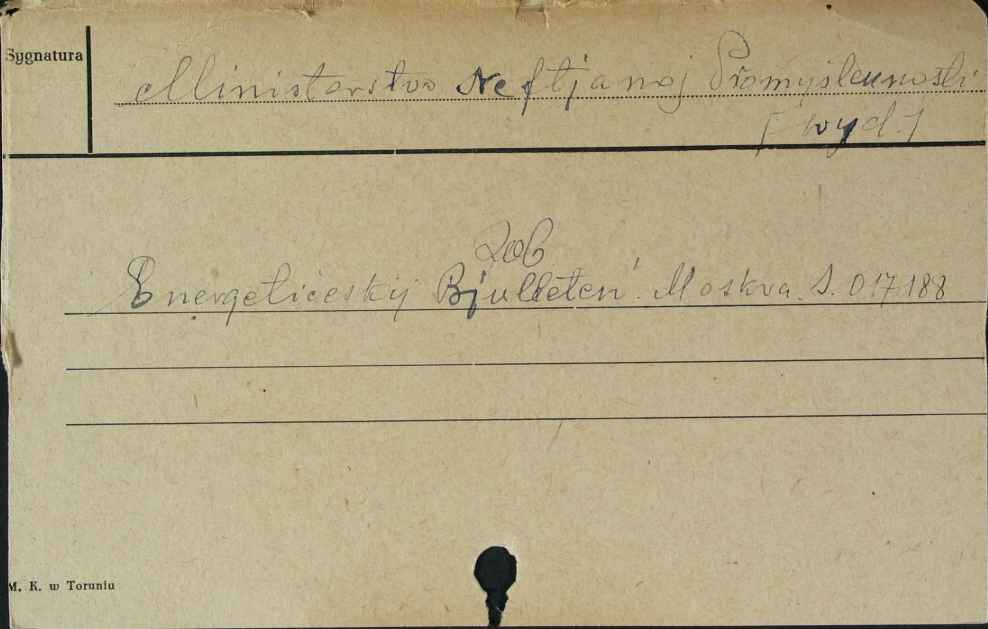 Sygnatura
Ministerstvo Neftjanoj Promyšlennosti
[wyd.]
zob
Energetičeskij Bjulleten'. Moskva. S. 017.188
M. K. w Toruniu